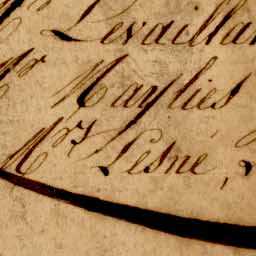 Levaillan
Mr Maylies
Mrs Lesné,